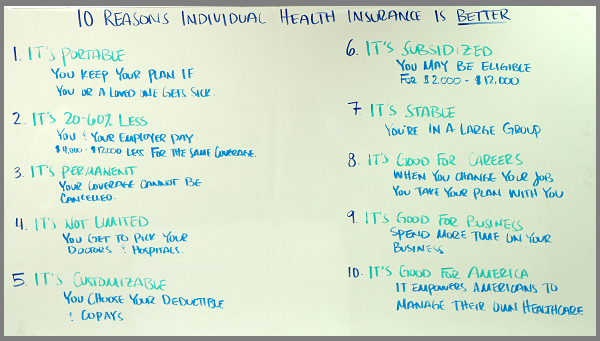 10 REASONS INDIVIDUAL HEALTH INSURANCE IS BETTER
1. IT'S PORTABLE
YOU KEEP YOUR PLAN IF
YOU OR A LOVED ONE GETS SICK.
2. IT'S 20-60% LESS
YOU & YOUR EMPLOYER PAY
$4,000 - $12,000 LESS FOR THE SAME COVERAGE.
3. IT'S PERMANENT
YOUR COVERAGE CANNOT BE
CANCELLED.
4. IT'S NOT LIMITED
YOU GET TO PICK YOUR
DOCTORS & HOSPITALS.
5. IT'S CUSTOMIZABLE
YOU CHOOSE YOUR DEDUCTIBLE
& COPAYS
6. IT'S SUBSIDIZED
YOU MAY BE ELIGIBLE
FOR $2,000 - $12,000
7 IT'S STABLE
YOU'RE IN A LARGE GROUP
8 IT'S GOOD FOR CAREERS
WHEN YOU CHANGE YOUR JOB
YOU TAKE YOUR PLAN WITH YOU
9. IT'S GOOD FOR BUSINESS
SPEND MORE TIME ON YOUR
BUSINESS
10. IT'S GOOD FOR AMERICA
IT EMPOWERS AMERICANS TO
MANAGE THEIR OWN HEALTHCARE